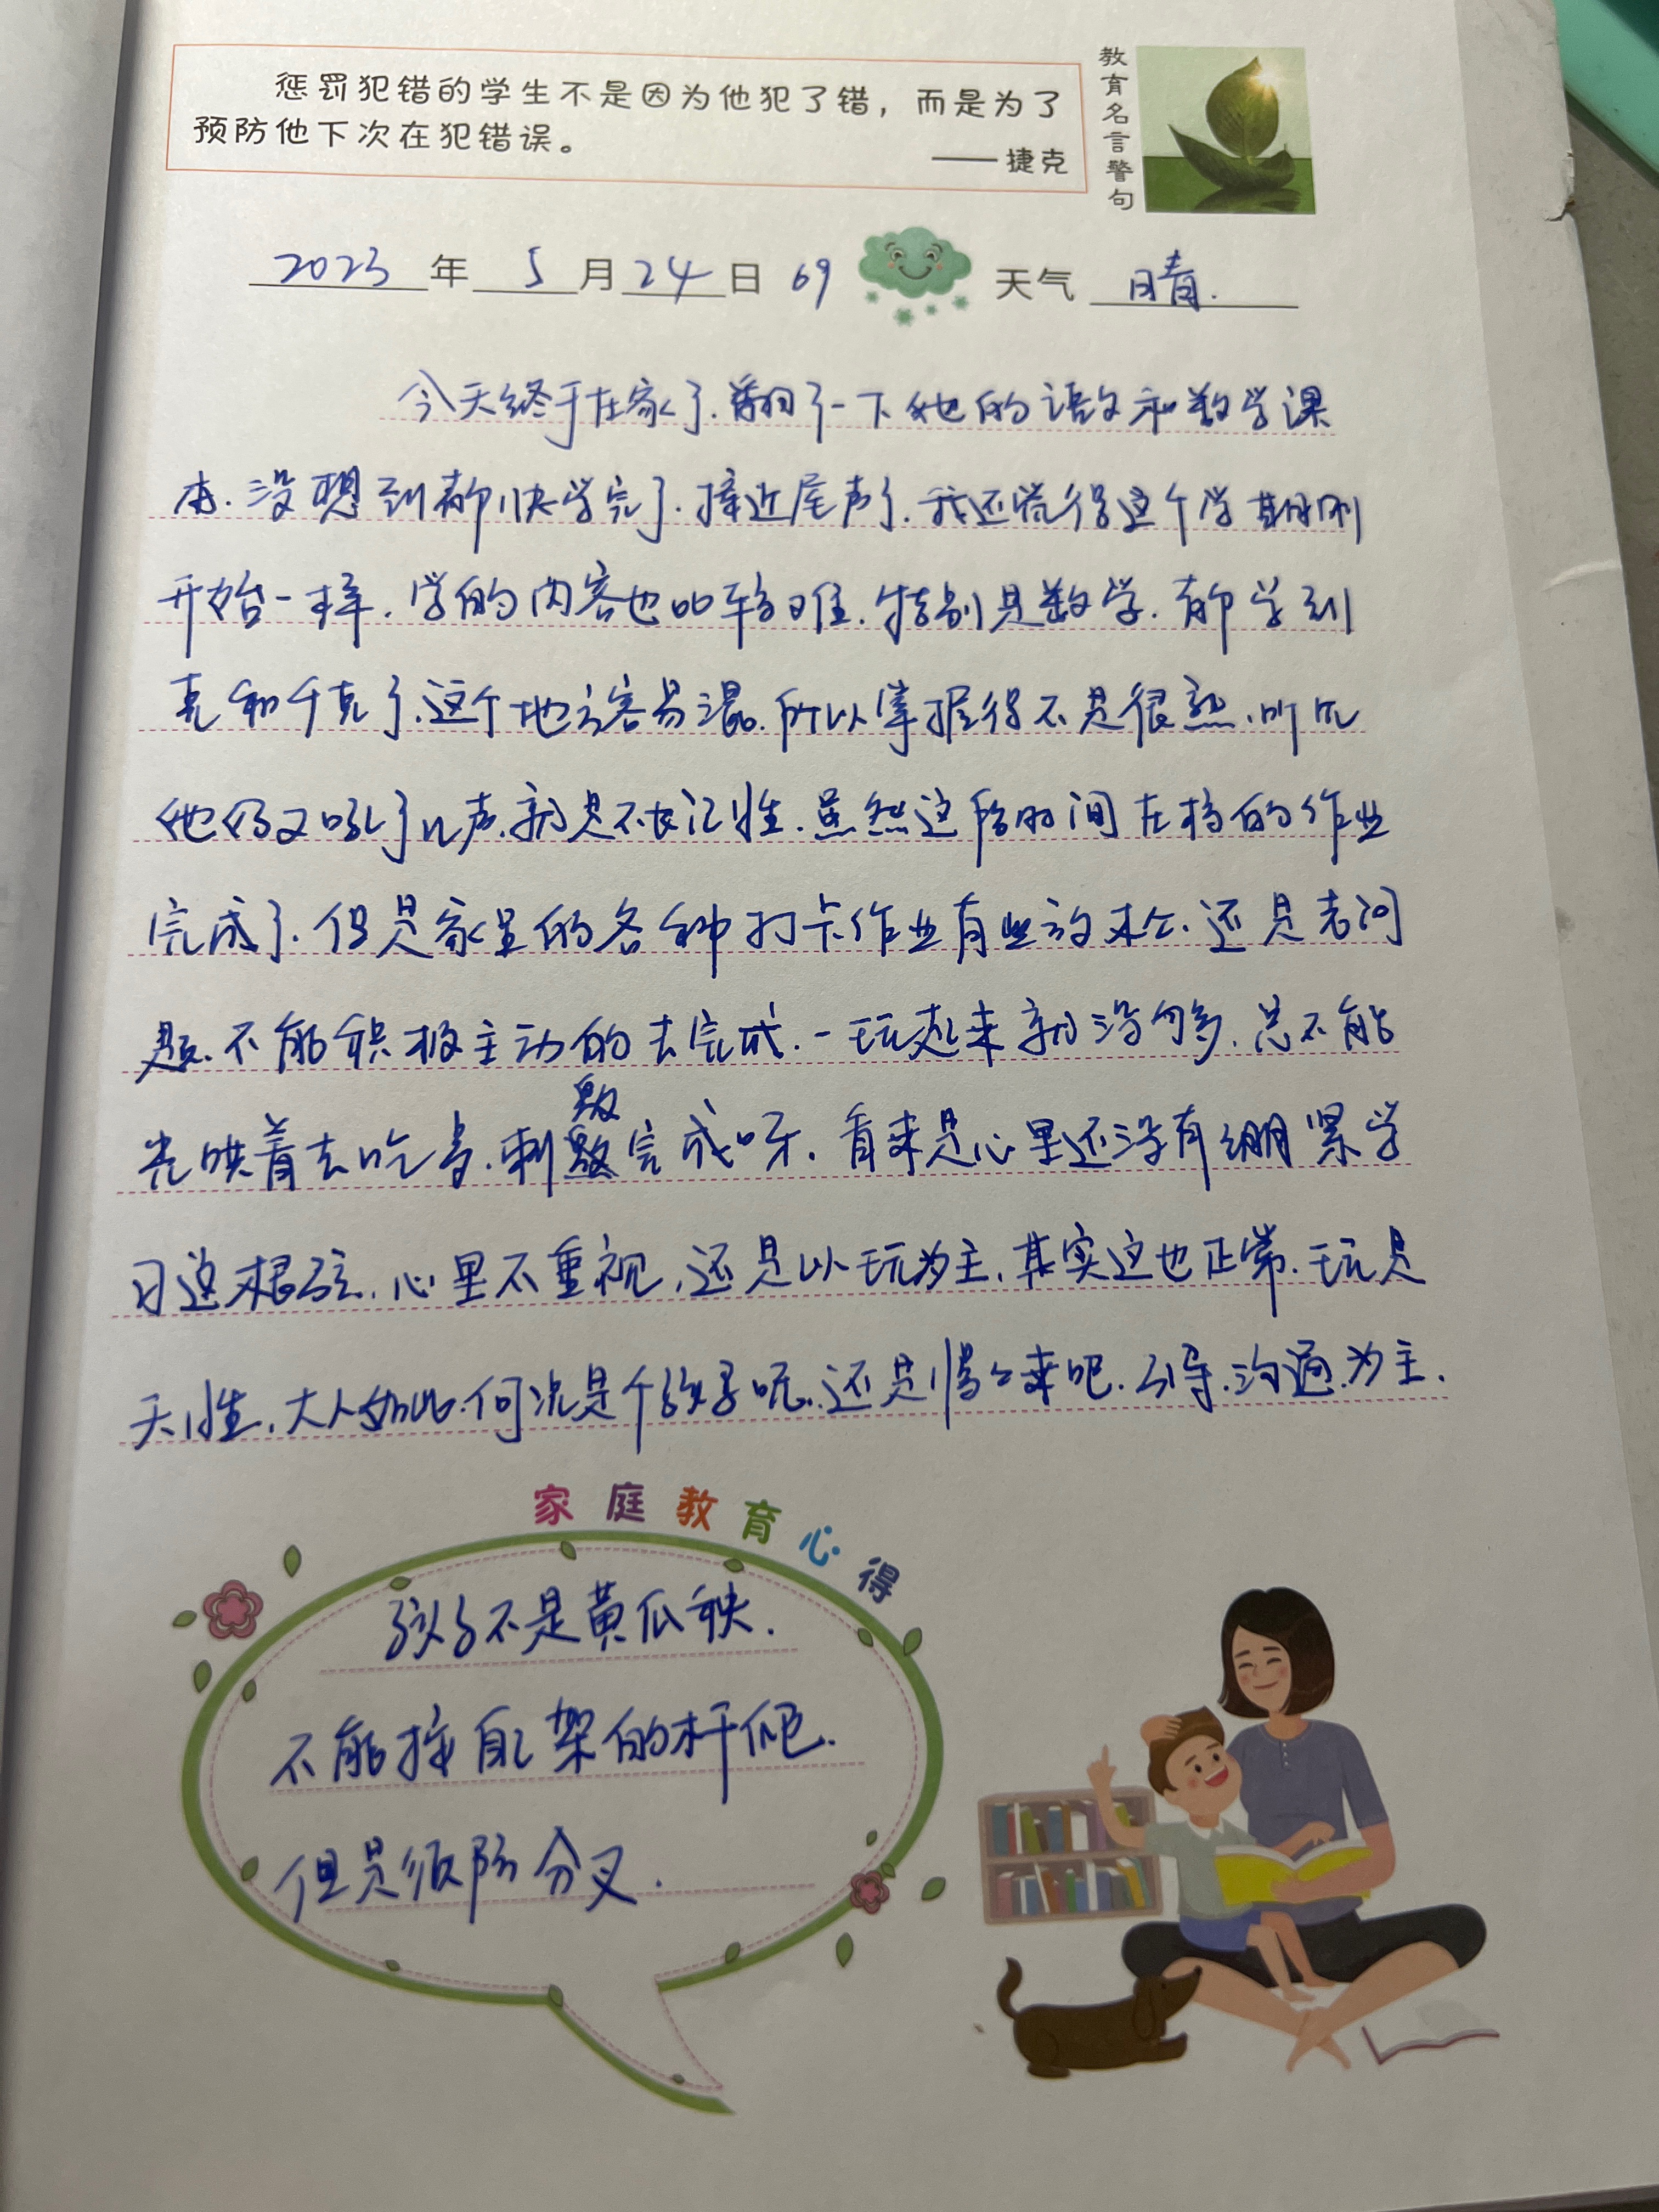 惩罚犯错的学生不是因为他犯了错，而是为了
预防他下次在犯错误。
——捷克
教育名言警句
2023年5月24日 69 天气 晴.
今天终于在家了.翻了一下他的语文和数学课
本.没想到都快学完了.接近尾声了.我还觉得这个学期刚
开始一样.学的内容也比较难.特别是数学.都学到
克和千克了.这个地方容易混.所以掌握得不是很熟.听说
他仍又吼了几声.就是不长记性.虽然这段时间在校的作业
完成了.但是家里的各种打卡作业有些放松.还是老问
题.不能积极主动的去完成.一玩起来就没够.总不能
光哄着去吃着.刺激完成呀.看来是心里还没有绷紧学
习这根弦.心里不重视.还是以玩为主.其实这也正常.玩是
天性.大人如此.何况是个孩子呢.还是慢慢来吧.引导.沟通.为主.
家庭教育心得
孩子不是黄瓜秧.
不能按自己架的杆爬.
但是须防分叉.